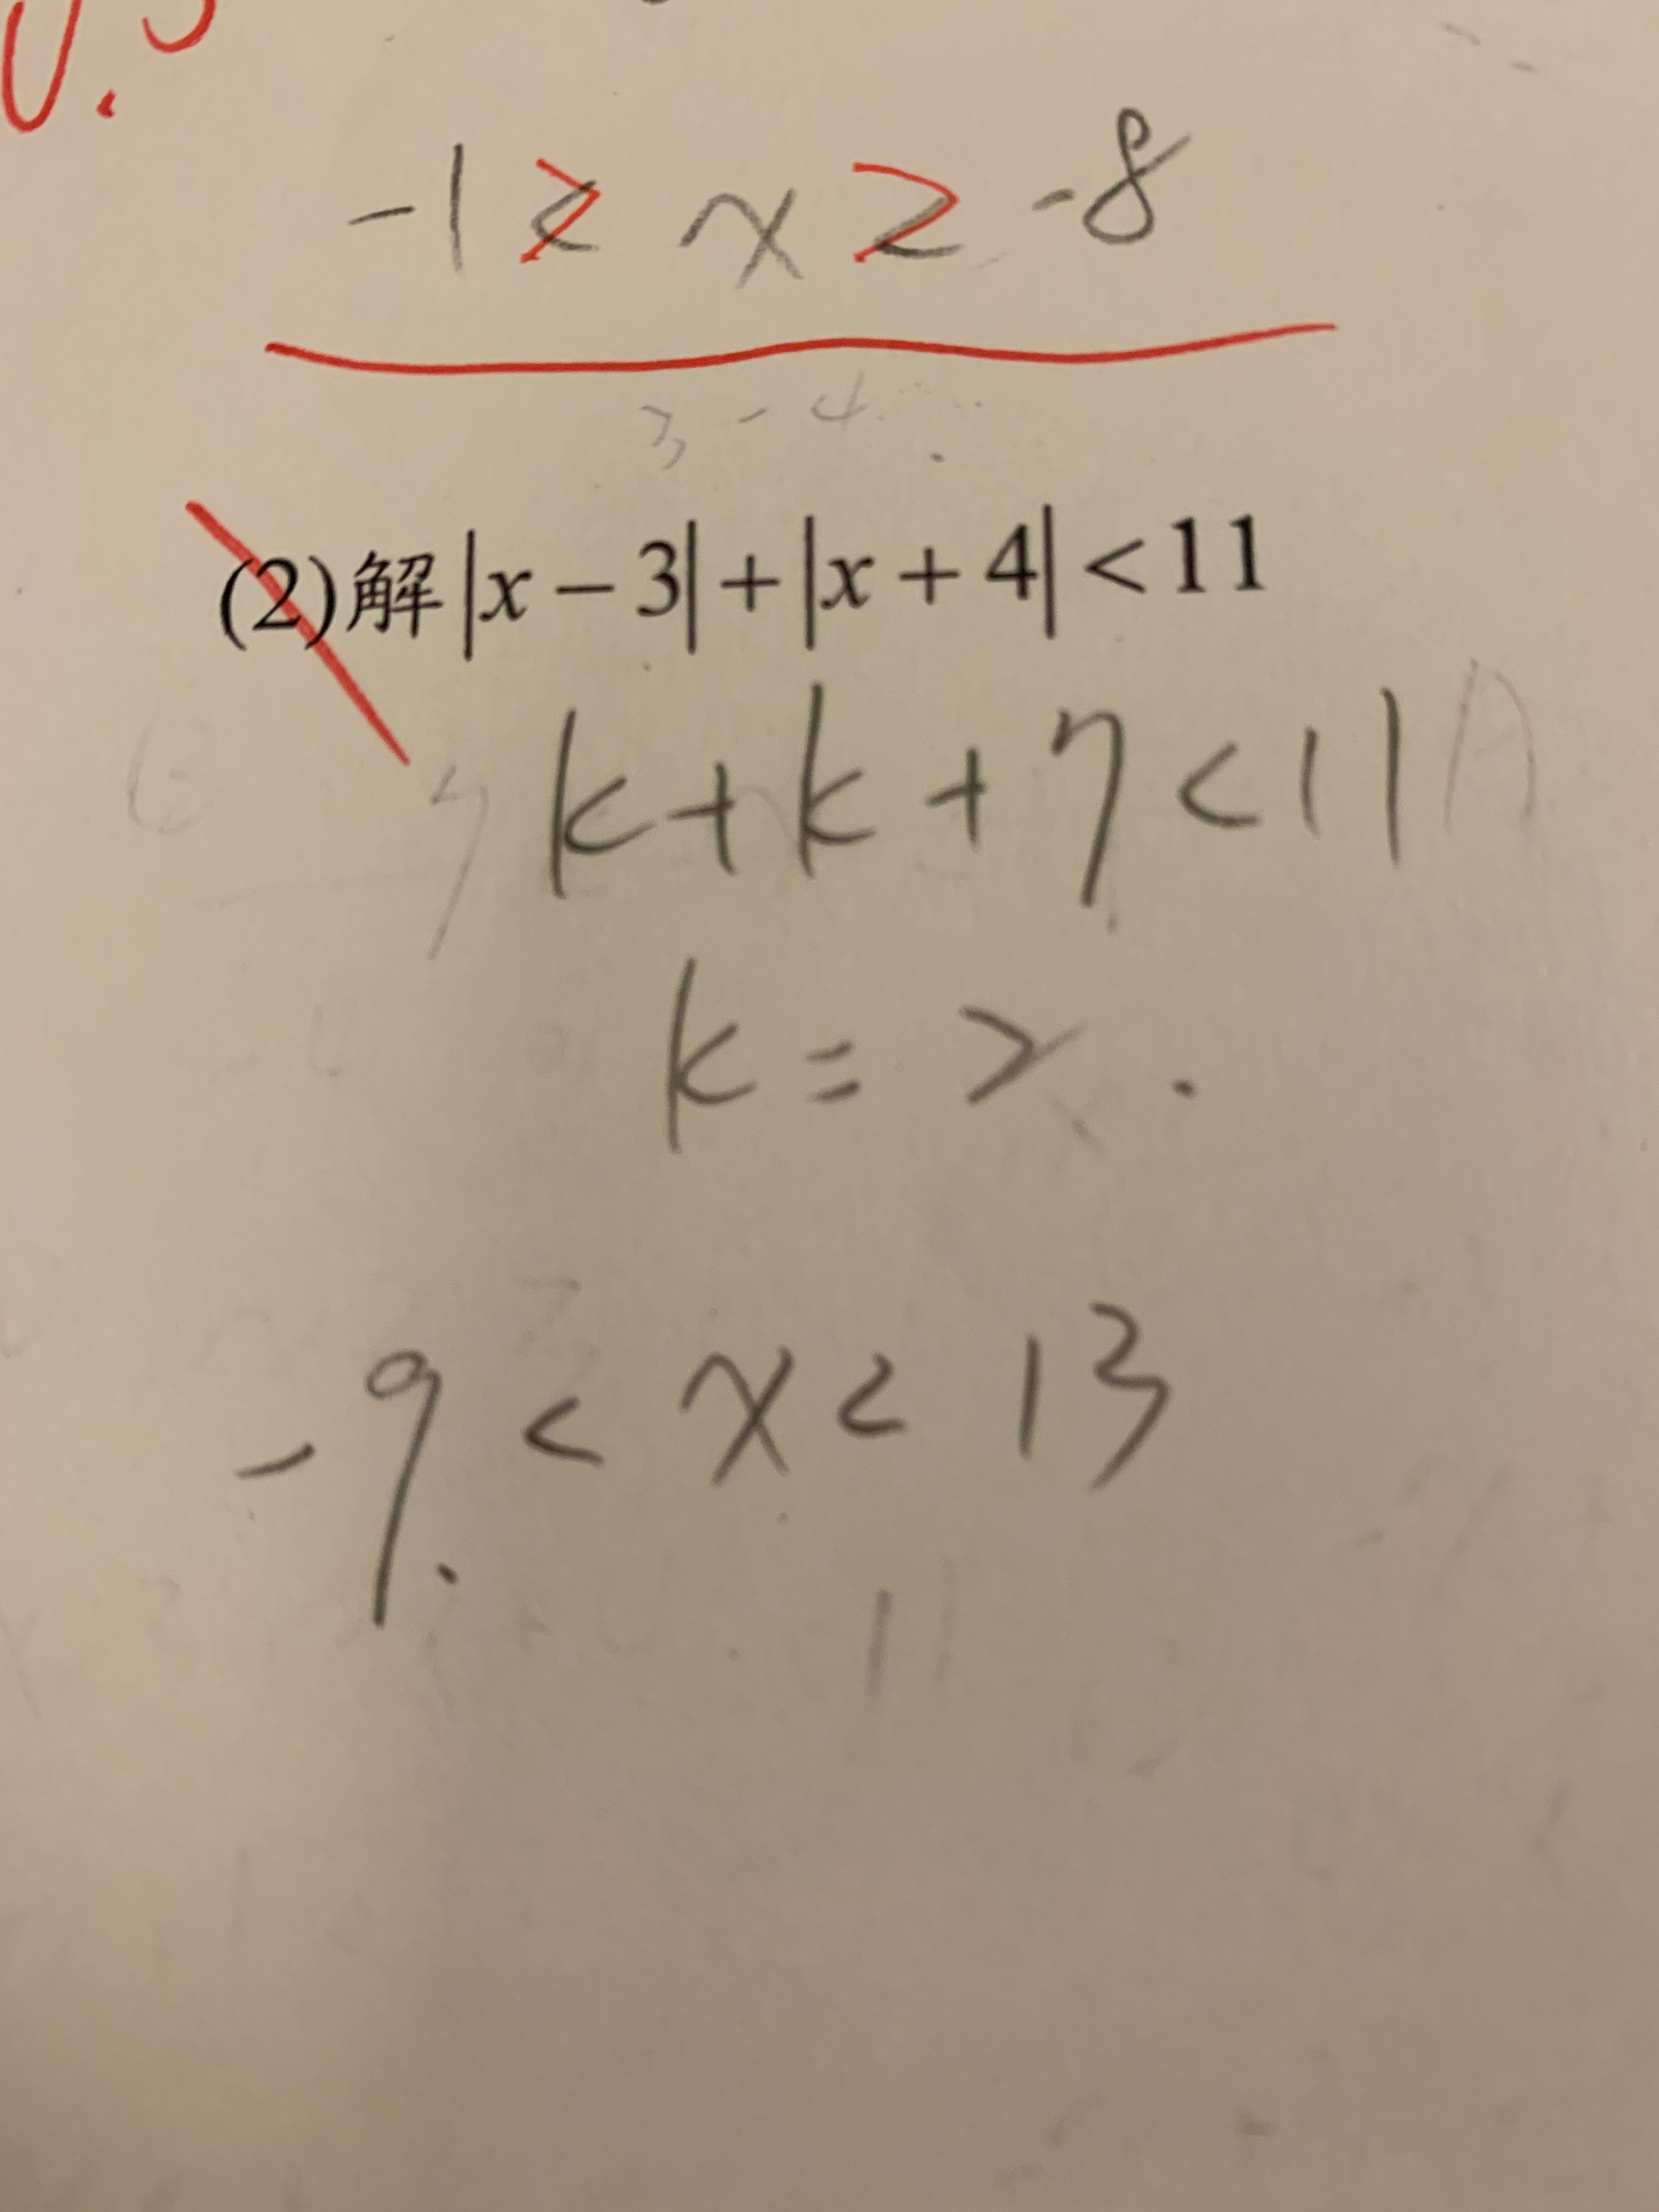 -1 ≥ x ≥ -8
3 -4
(2)解|x-3|+|x+4|<11
k+k+7<11
k = 2.
-9 < x < 13